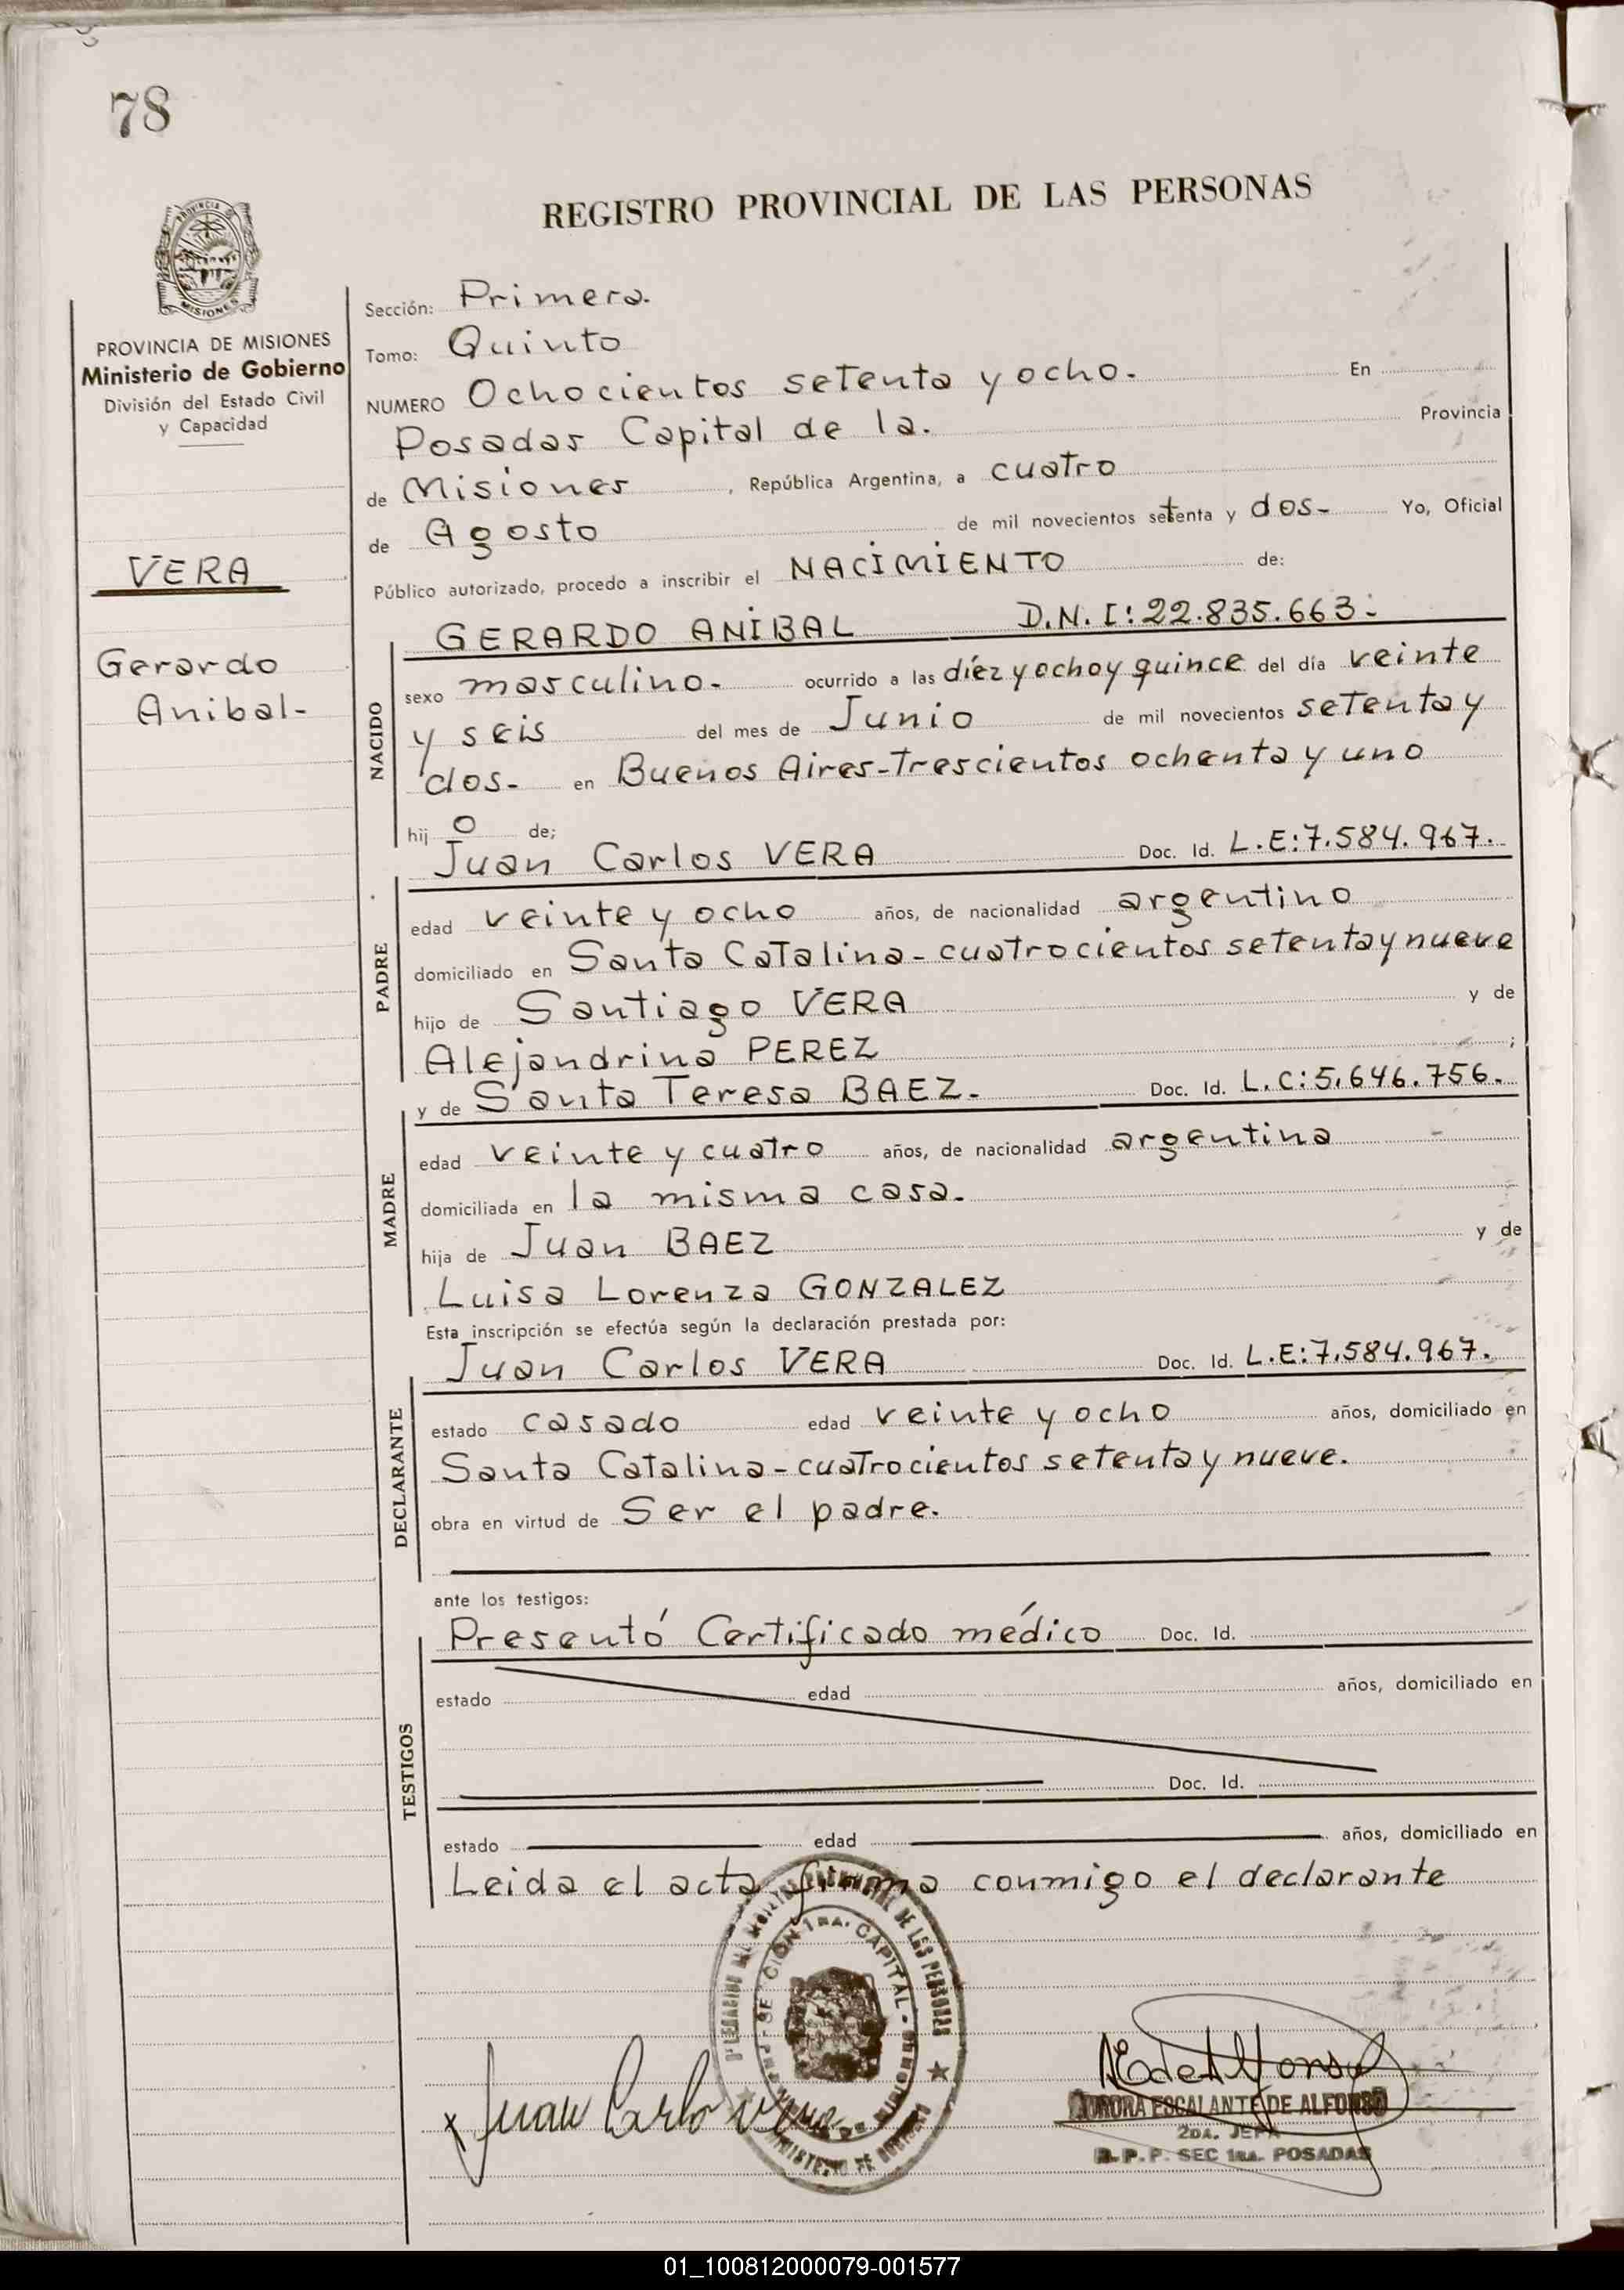 78
REGISTRO PROVINCIAL DE LAS PERSONAS
PROVINCIA DE
MISIONES
PROVINCIA DE MISIONES
Ministerio de Gobierno
División del Estado Civil
y Capacidad
VERA
Gerardo
Anibal-
Sección: Primera.
Tomo: Quinto
NUMERO Ochocientos setenta y ocho. En
Posadas Capital de la. Provincia
de Misiones, República Argentina, a cuatro
de Agosto de mil novecientos setenta y dos- Yo, Oficial
Público autorizado, procedo a inscribir el NACIMIENTO de:
NACIDO
GERARDO ANIBAL D.N.I:22.835.663:
sexo masculino. ocurrido a las diez y ocho y quince del día veinte
y seis del mes de Junio de mil novecientos setenta y
dos. en Buenos Aires-Trescientos ochenta y uno
hij o de;
PADRE
Juan Carlos VERA Doc. Id. L.E:7.584.967.
edad veinte y ocho años, de nacionalidad argentino
domiciliado en Santa Catalina-cuatrocientos setenta y nueve
hijo de Santiago VERA y de
Alejandrina PEREZ ;
MADRE
y de Santa Teresa BAEZ. Doc. Id. L.C:5.646.756.
edad veinte y cuatro años, de nacionalidad argentina
domiciliada en la misma casa.
hija de Juan BAEZ y de
Luisa Lorenza GONZALEZ
Esta inscripción se efectúa según la declaración prestada por:
DECLARANTE
Juan Carlos VERA Doc. Id. L.E:7.584.967.
estado casado edad veinte y ocho años, domiciliado en
Santa Catalina-cuatrocientos setenta y nueve.
obra en virtud de Ser el padre.
ante los testigos:
TESTIGOS
Presentó Certificado médico Doc. Id.
estado edad años, domiciliado en
Doc. Id.
estado edad años, domiciliado en
Leida el acta firma conmigo el declarante
DE LAS PERSONAS
SECCION 1RA. CAPITAL-
MINISTERIO DE GOBIERNO
Juan Carlo Vera
AURORA ESCALANTE DE ALFONSO
2DA. JEFA
R.P.P. SEC 1RA. POSADAS
01_100812000079-001577